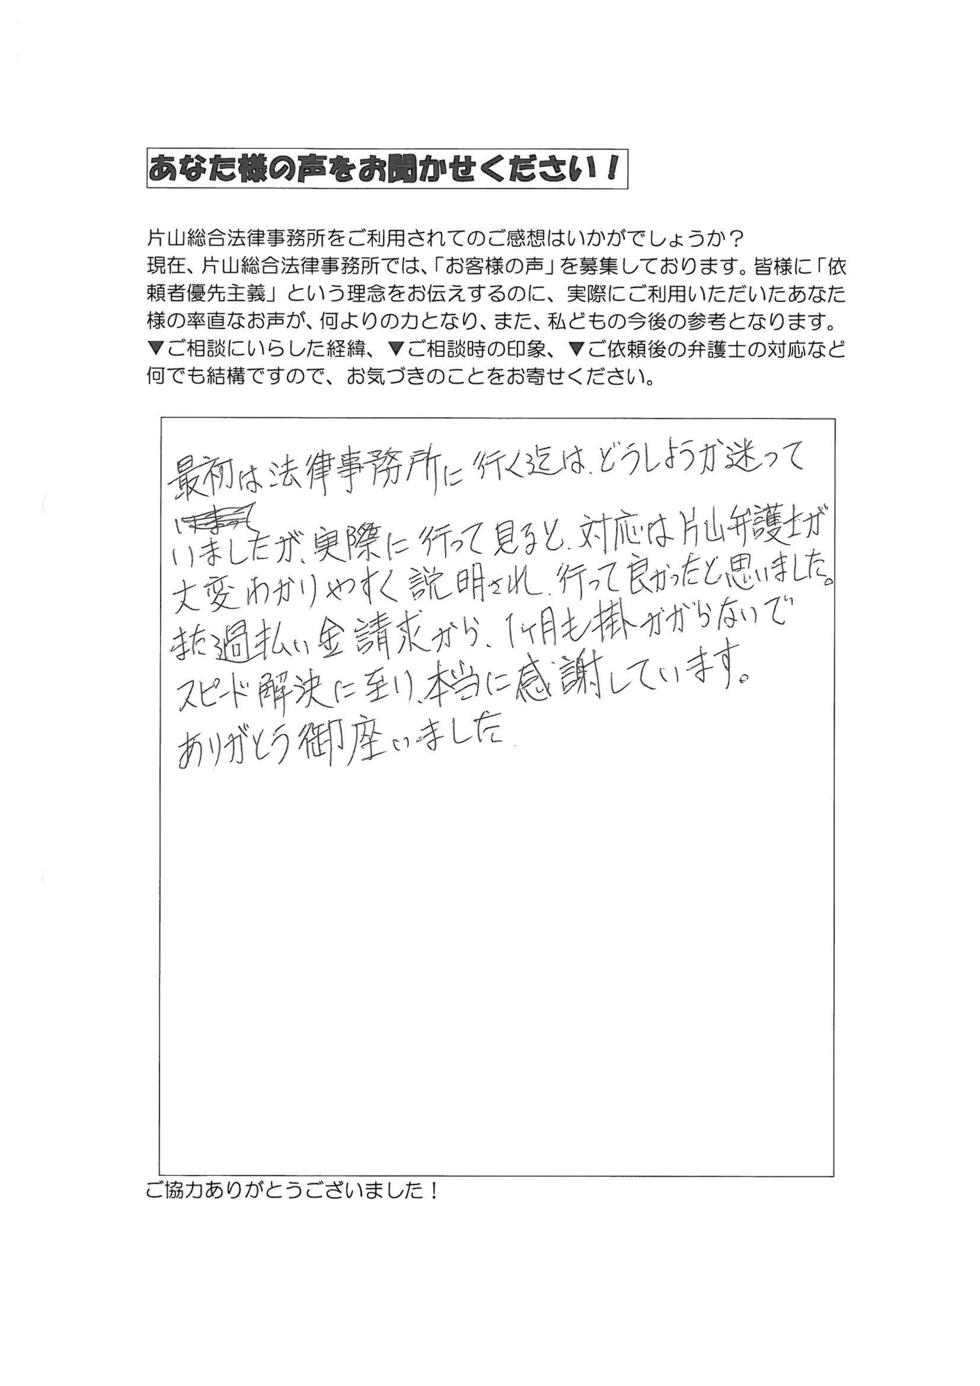 あなた様の声をお聞かせください！
片山総合法律事務所をご利用されてのご感想はいかがでしょうか？
現在、片山総合法律事務所では、「お客様の声」を募集しております。皆様に「依
頼者優先主義」という理念をお伝えするのに、実際にご利用いただいたあなた
様の率直なお声が、何よりの力となり、また、私どもの今後の参考となります。
▼ご相談にいらした経緯、▼ご相談時の印象、▼ご依頼後の弁護士の対応など
何でも結構ですので、お気づきのことをお寄せください。
最初は法律事務所に行く迄は、どうしようか迷って
いましたが、実際に行って見ると、対応は片山弁護士が
大変わかりやすく説明され、行って良かったと思いました。
また過払い金請求から、1ヶ月も掛かがらないで
スピード解決に至り、本当に感謝しています。
ありがとう御座いました
ご協力ありがとうございました！